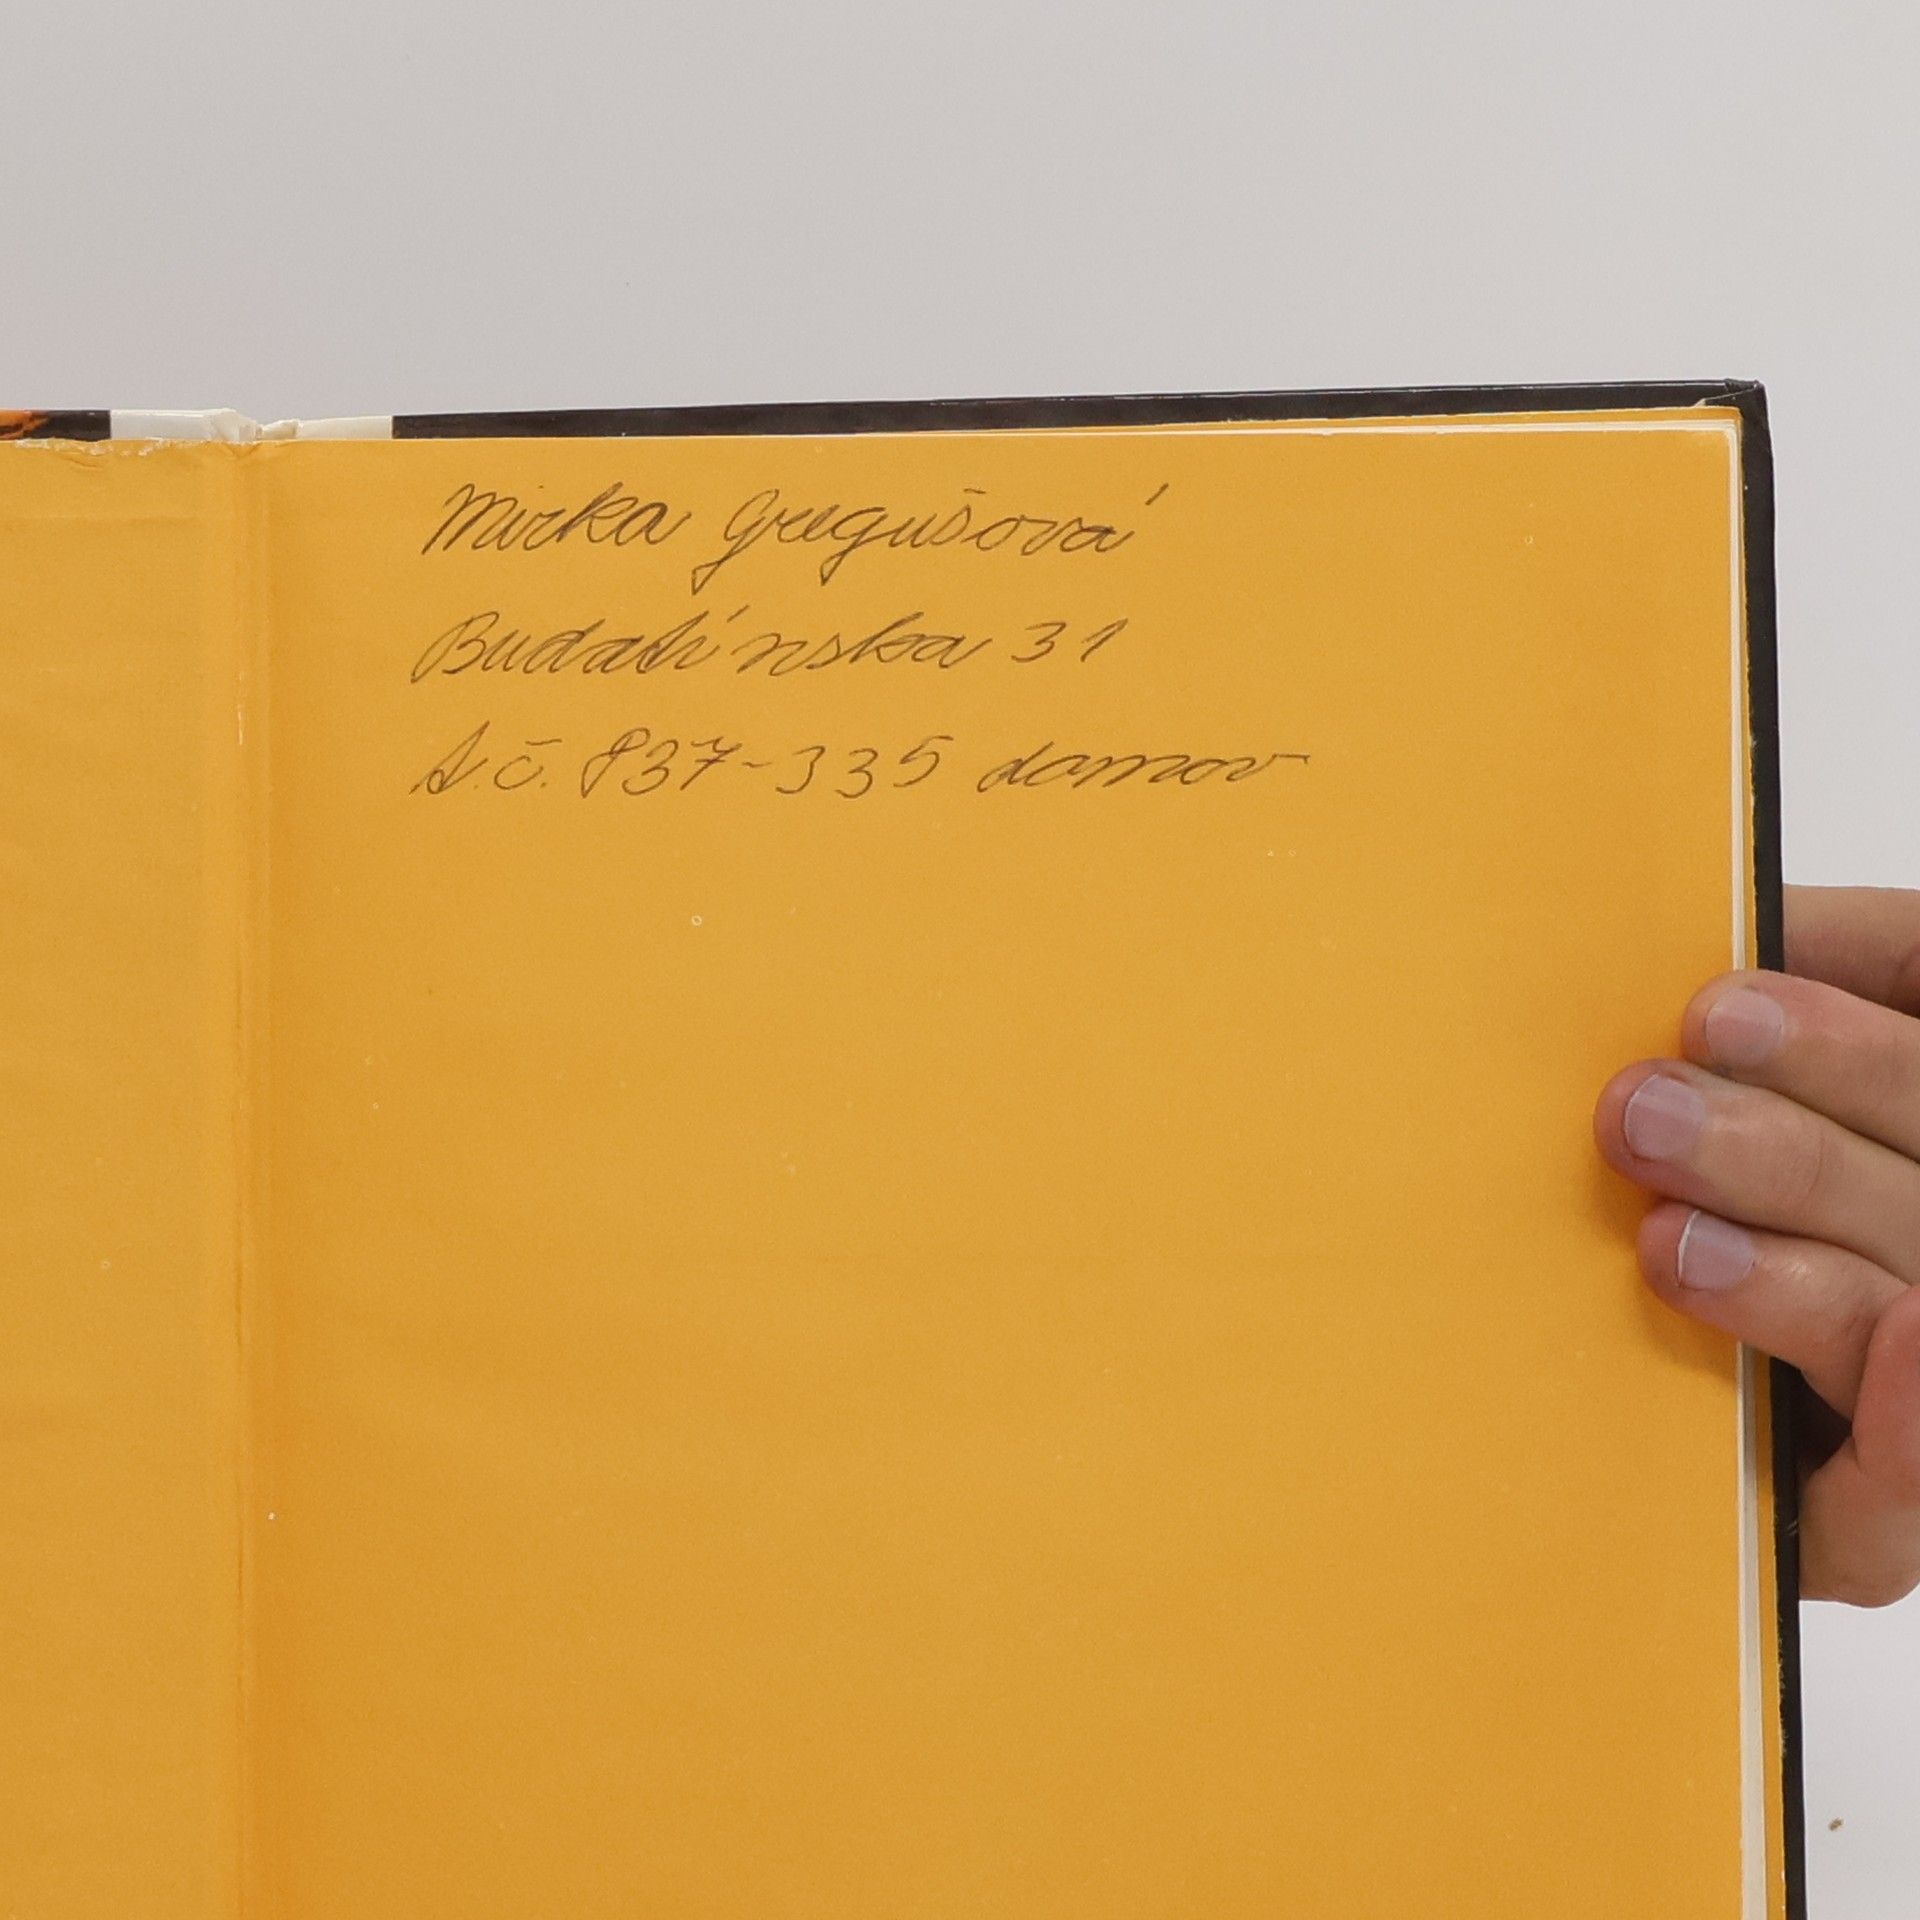 Mirka Gregušová
Budatínska 31
t.č. 837-335 domov